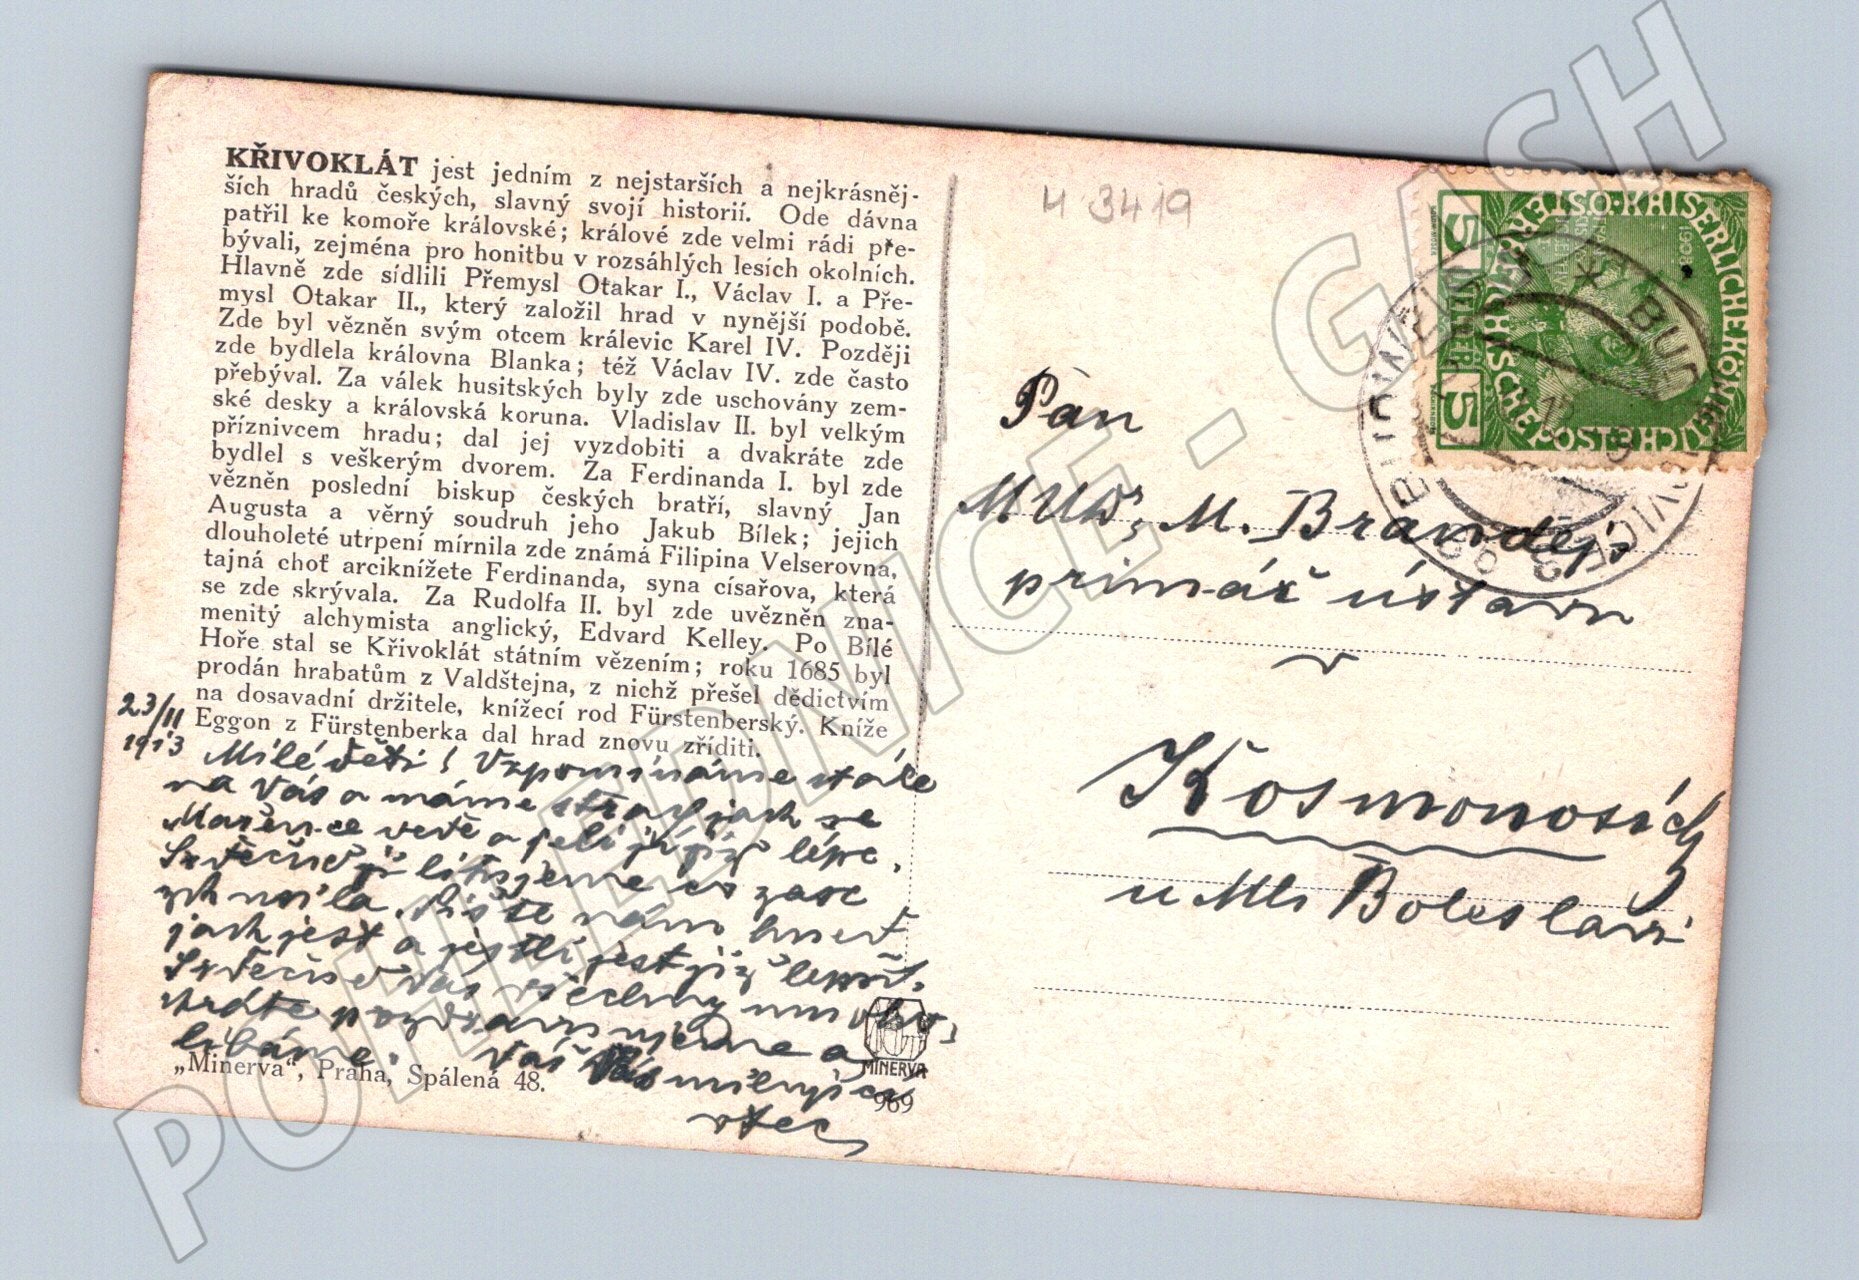 KŘIVOKLÁT jest jedním z nejstarších a nejkrásněj-
ších hradů českých, slavný svojí historií. Ode dávna
patřil ke komoře královské; králové zde velmi rádi pře-
bývali, zejména pro honitbu v rozsáhlých lesích okolních.
Hlavně zde sídlili Přemysl Otakar I., Václav I. a Pře-
mysl Otakar II., který založil hrad v nynější podobě.
Zde byl vězněn svým otcem králevic Karel IV. Později
zde bydlela královna Blanka; též Václav IV. zde často
přebýval. Za válek husitských byly zde uschovány zem-
ské desky a královská koruna. Vladislav II. byl velkým
příznivcem hradu; dal jej vyzdobiti a dvakráte zde
bydlel s veškerým dvorem. Za Ferdinanda I. byl zde
vězněn poslední biskup českých bratří, slavný Jan
Augusta a věrný soudruh jeho Jakub Bílek; jejich
dlouholeté utrpení mírnila zde známá Filipina Velserovna,
tajná choť arciknížete Ferdinanda, syna císařova, která
se zde skrývala. Za Rudolfa II. byl zde uvězněn zna-
menitý alchymista anglický, Edvard Kelley. Po Bílé
Hoře stal se Křivoklát státním vězením; roku 1685 byl
prodán hrabatům z Valdštejna, z nichž přešel dědictvím
na dosavadní držitele, knížecí rod Fürstenberský. Kníže
Eggon z Fürstenberka dal hrad znovu zříditi.
23/11
1913
Milé děti! Vzpomínáme stále
na Vás a máme strach jak se
Mařence vede a jeli jí již lépe.
Srdečně jí litujeme co zase
zkusila. Pište nám hned
jak jest a jestli jest již lepší.
Srdečně Vás všechny
pozdravujeme a
líbáme. Váš Vás milující
otec
„Minerva“, Praha, Spálená 48.
MINERVA
969
H 3419
Pan
MUDr. M. Brandejs
primář ústavu
v
Kosmonosích
u Ml. Boleslavi
KAISERLICHE KÖNIGLICHE ÖSTERREICHISCHE POST
5 HELLER 5
1908
BUDWEIS
BUDĚJOVICE